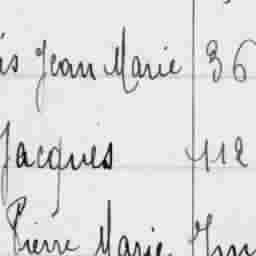 is Jean Marie 36
Jacques 412
Pierre Marie Im